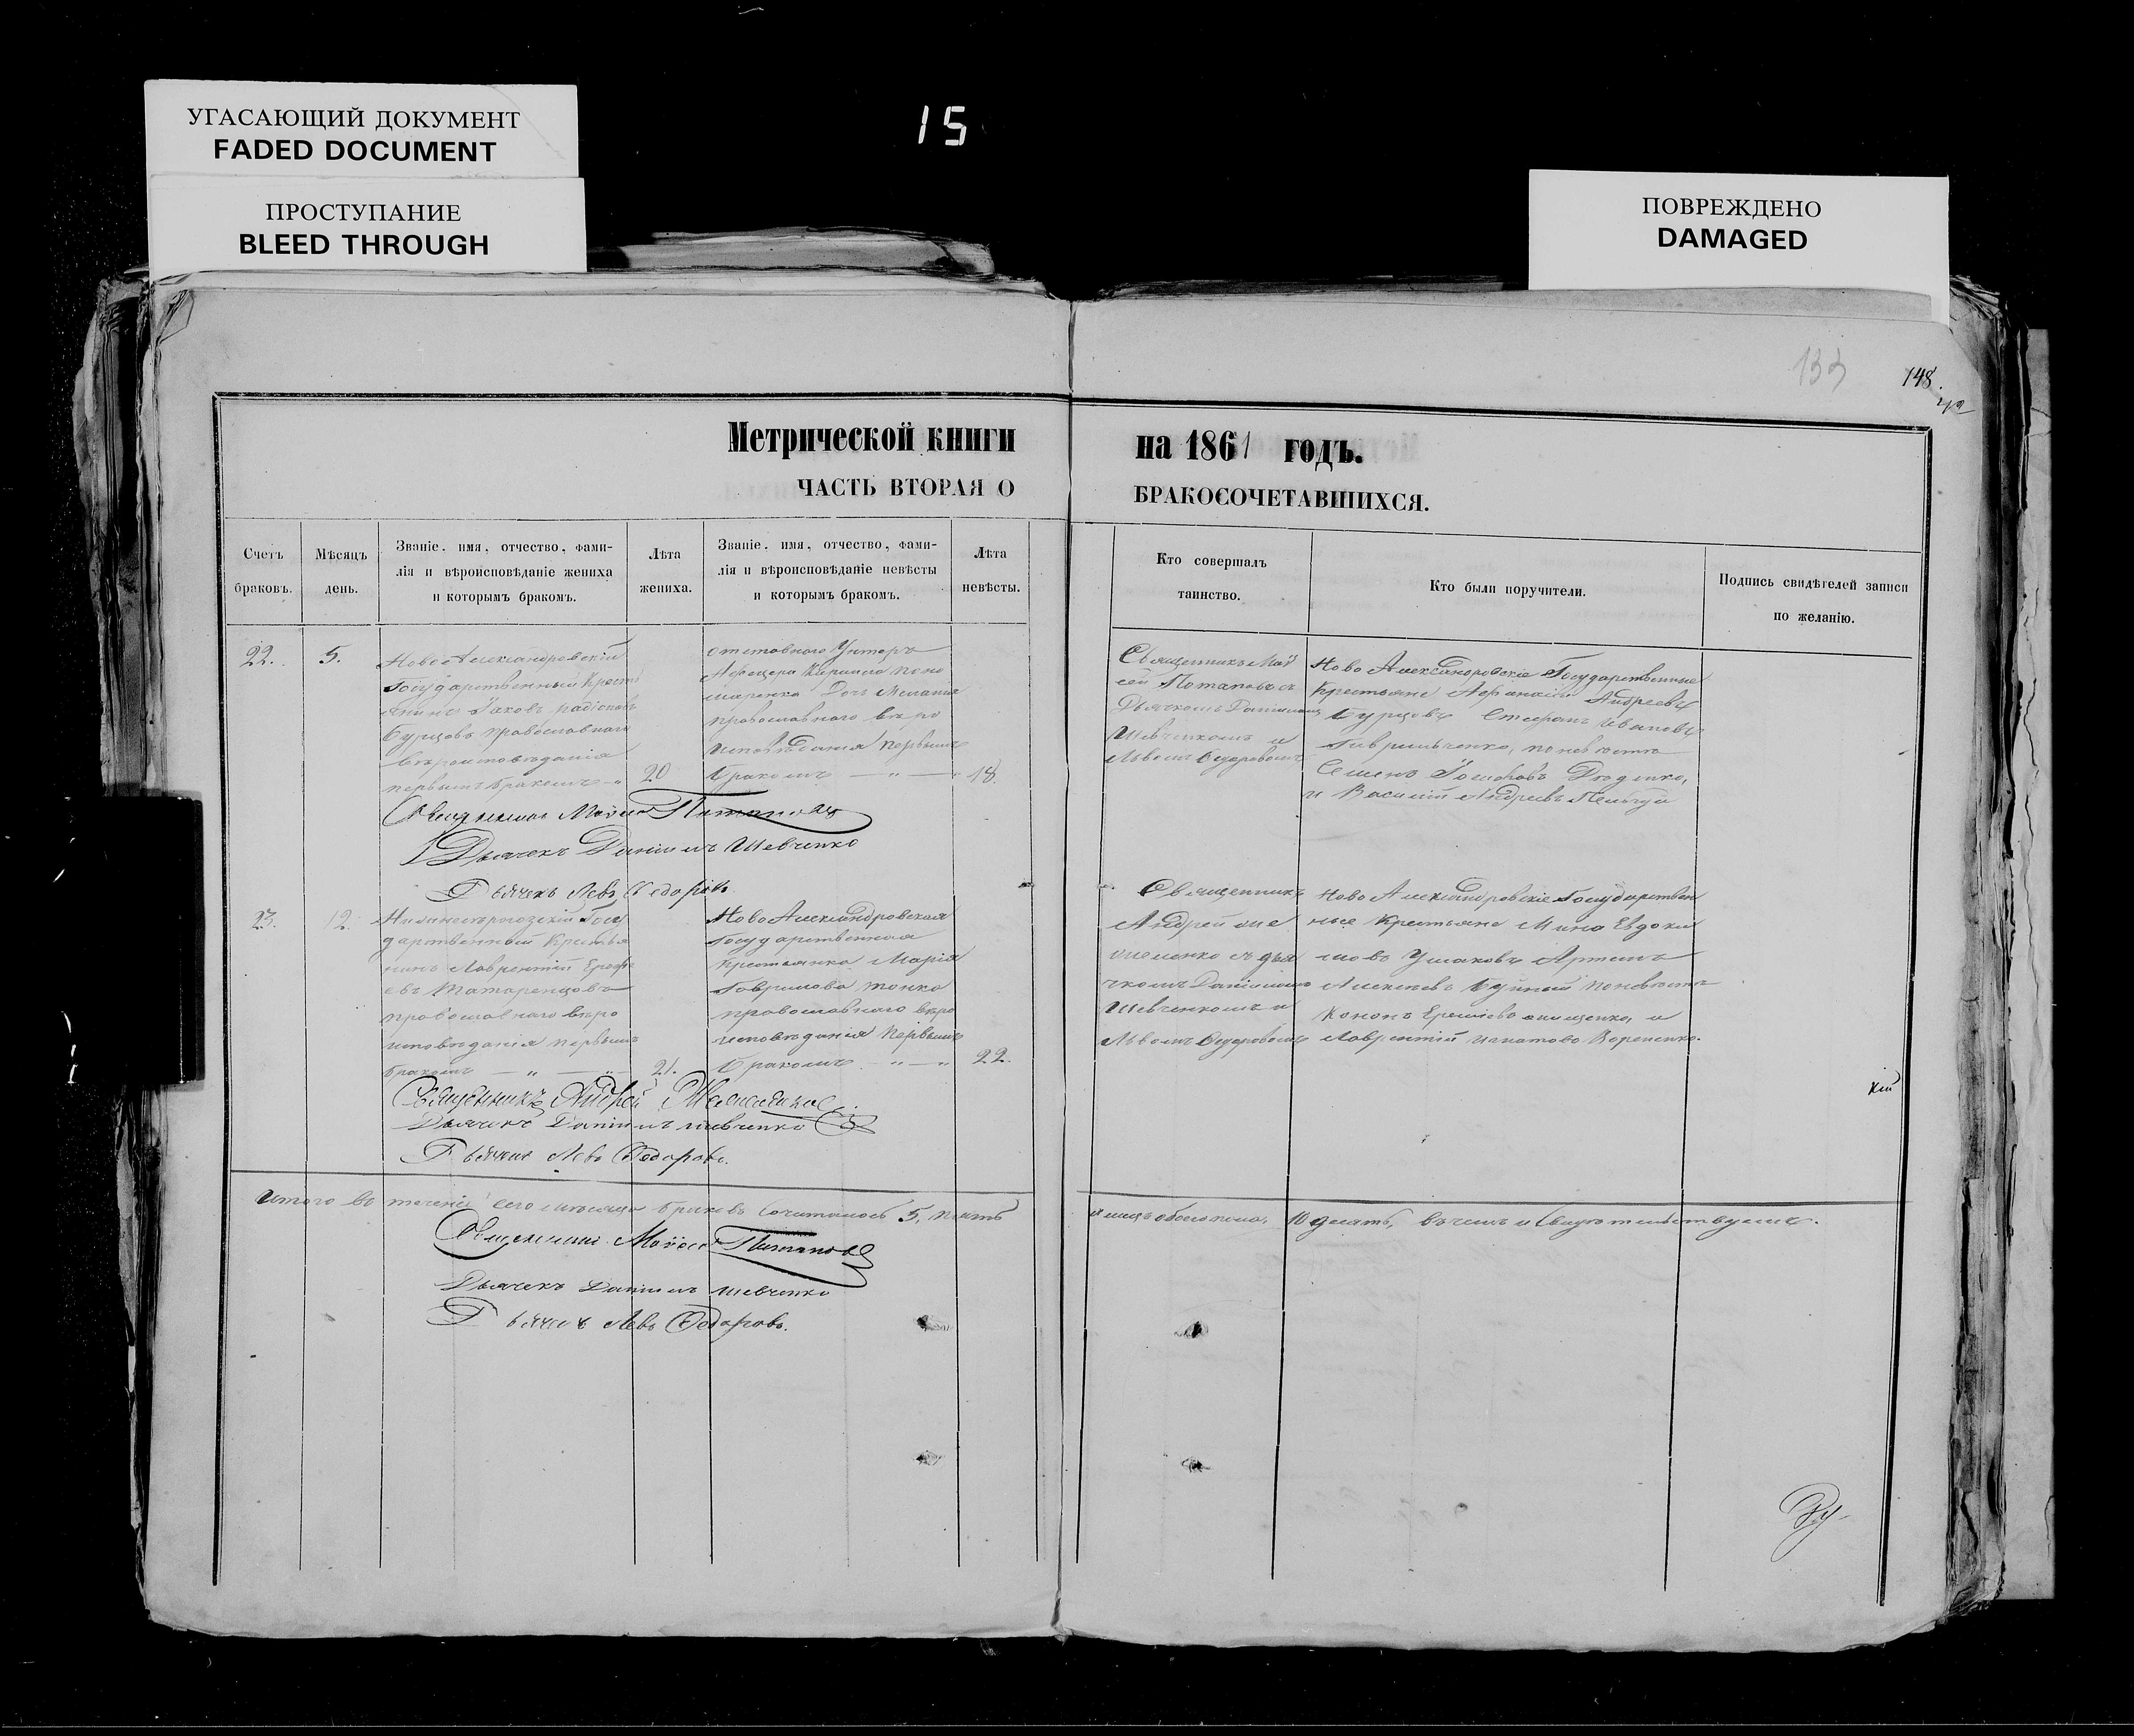 УГАСАЮЩИЙ ДОКУМЕНТ
FADED DOCUMENT
ПРОСТУПАНИЕ
BLEED THROUGH
15
ПОВРЕЖДЕНО
DAMAGED
133
148.
Метрической книги на 1861 годъ.
ЧАСТЬ ВТОРАЯ О БРАКОСОЧЕТАВШИХСЯ.
Счетъ
браковъ.
Мѣсяцъ
день.
Званіе. имя, отчество, фами-
лія и вѣроисповѣданіе жениха
и которымъ бракомъ.
Лѣта
жениха.
Званіе. имя, отчество, фами-
лія и вѣроисповѣданіе невѣсты
и которымъ бракомъ.
Лѣта
невѣсты.
Кто совершалъ
таинство.
Кто были поручители.
Подпись свидѣтелей записи
по желанію.
22.
5.
Ново Александровскій
Государственный Кресть
янинъ Іаковъ Радіоновъ
Бурцовъ православнаго
вѣроисповѣданія
первымъ бракомъ
20
отставного Унтеръ
Афецера Кирилла Поно
маренка Дочь Меланія
православнаго вѣро
исповѣданія первымъ
бракомъ
18.
Священникъ Мой
сей Потаповъ съ
Дьячкомъ Даніиломъ
Шевченкомъ и
Львомъ Ѳедоровымъ
Ново Александровскіе Государственные
Крестьяне Афанасій Андреевъ
Бурцовъ Стефанъ Ивановъ
Гавриличенко, по невѣстѣ
Семенъ
и Василій Андреевъ
Священникъ Мойсей Потаповъ
Дьячекъ Даніилъ Шевченко
Дьячекъ Левъ Ѳедоровъ.
23.
12.
Госу
дарственный Крестья
нинъ Лаврентій Ерофе
евъ Татаренцовъ
православнаго вѣро
исповѣданія первымъ
бракомъ
21.
Ново Александровская
Государственная
Крестьянка Марія
Гаврилова
православнаго вѣро
исповѣданія первымъ
бракомъ
22.
Священникъ
Андрей
съ дья
чкомъ Даніиломъ
Шевченкомъ и
Львомъ Ѳедоровымъ
Ново Александровскіе Государствен
ные Крестьяне Мина Евдоки
мовъ Ушаковъ Артемъ
Алексѣевъ по невѣстѣ
Кононъ и
Лаврентій
Священникъ Андрей
Дьячекъ Даніилъ Шевченко
Дьячекъ Левъ Ѳедоровъ.
кій
Итого въ теченіе сего мѣсяца браковъ сочиталось 5, пять
а лицъ обоего пола, 10 десять, въ чемъ и свидѣтельствуемъ.
Священникъ Мойсей Потаповъ
Дьячекъ Даніилъ Шевченко
Дьячекъ Левъ Ѳедоровъ.